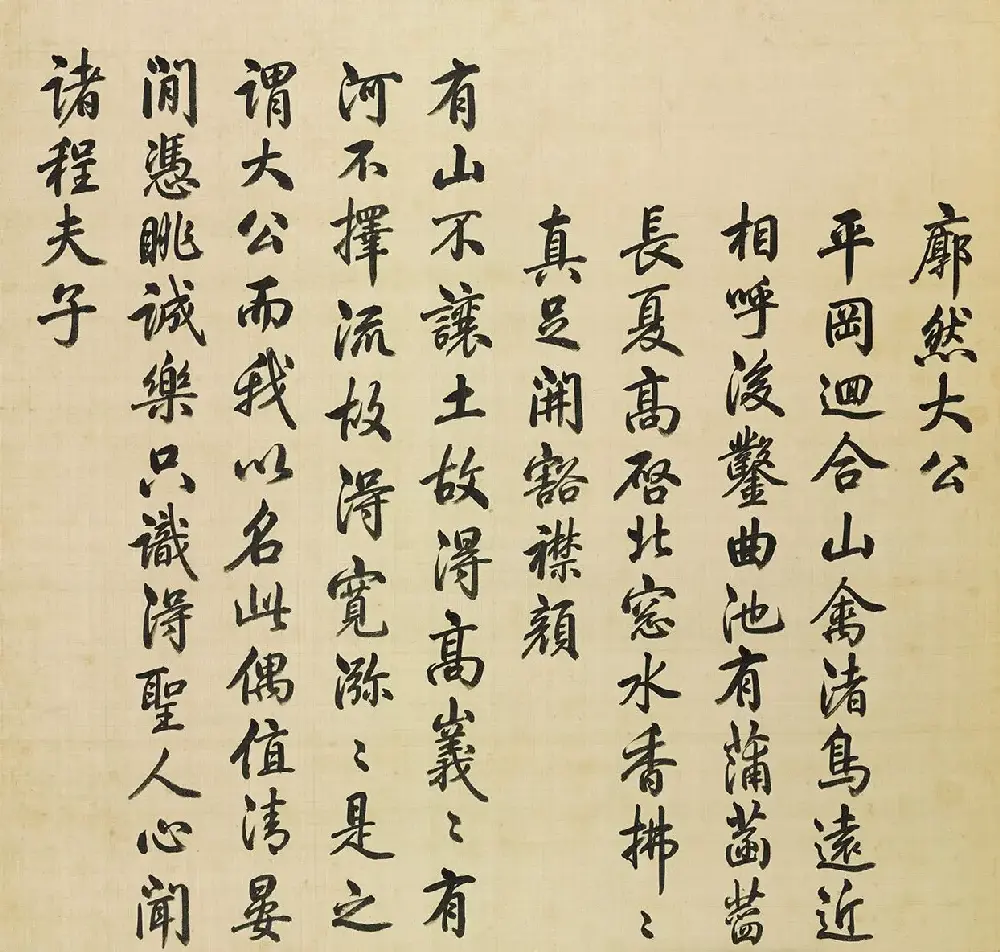 廓然大公
平岡迴合山禽渚鳥遠近
相呼後鑿曲池有蒲菡萏
長夏高啓北窓水香拂〻
真足開豁襟顏
有山不讓土故得高嶬〻有
河不擇流故得寬㳽〻是之
謂大公而我以名此偶值清晏
閒憑眺誠樂只識得聖人心聞
諸程夫子